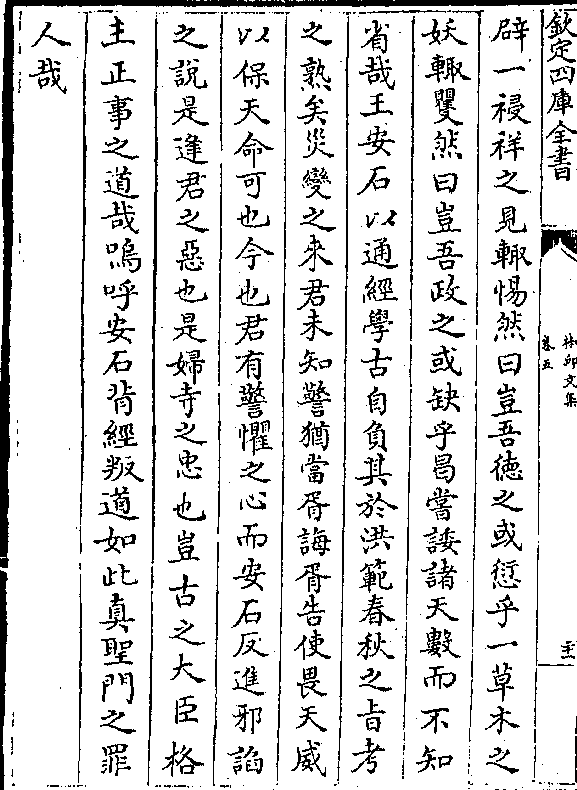 欽定四庫全書
卷五
辟一祲祥之見輙惕然曰豈吾徳之或愆乎一草木之
妖輙瞿然曰豈吾政之或缺乎曷嘗諉諸天數而不知
省哉王安石以通經學古自負其於洪範春秋之㫖考
之熟矣災變之來君未知警猶當胥誨胥告使畏天威
以保天命可也今也君有警懼之心而安石反進邪謟
之說是逢君之惡也是婦寺之忠也豈古之大臣格
主正事之道哉嗚呼安石背經叛道如此真聖門之罪
人哉